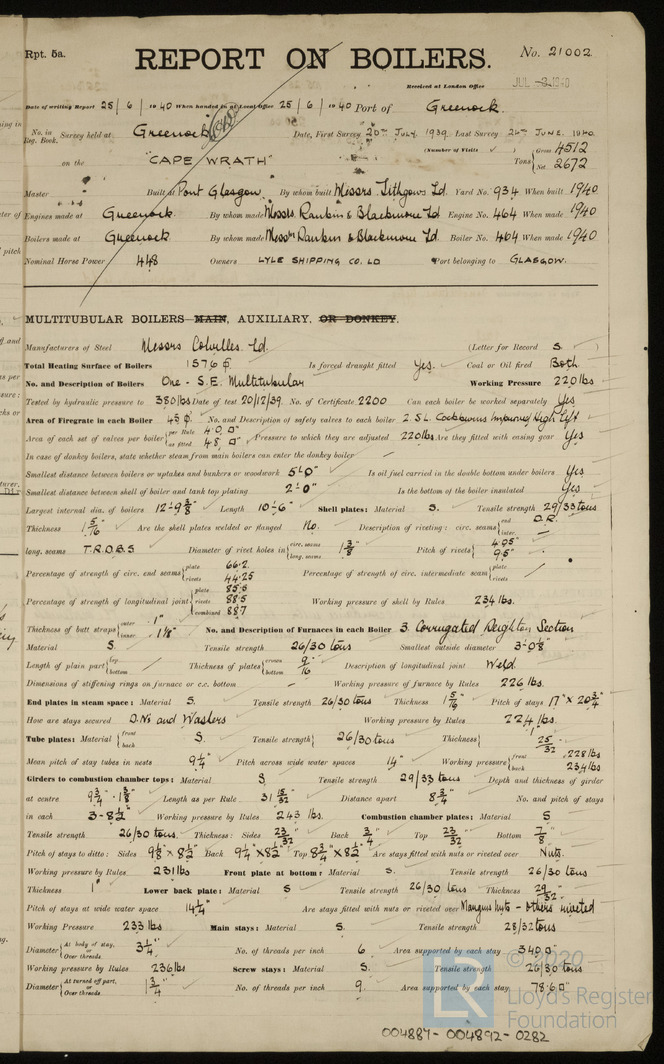 Rpt. 5a.
REPORT ON BOILERS.
No. 21002
Received at London Office
JUL -3 1940
Date of writing Report 25/6/1940 When handed in at Local Office 25/6/1940 Port of Greenock.
No. in Reg. Book. Survey held at Greenock Date, First Survey 20th JULY. 1939. Last Survey 24th JUNE. 1940.
(Number of Visits ✓ )
on the "CAPE WRATH" Tons { Gross 4512 Net 2672
Master Built at Port Glasgow. By whom built Messrs Lithgows Ld Yard No. 934 When built 1940
Engines made at Greenock. By whom made Messrs. Rankin & Blackmore Ld Engine No. 464 When made 1940
Boilers made at Greenock. By whom made Messrs Rankin & Blackmore Ld. Boiler No. 464 When made 1940
Nominal Horse Power 448 Owners LYLE SHIPPING CO. LD Port belonging to GLASGOW.
MULTITUBULAR BOILERS MAIN, AUXILIARY, OR DONKEY.
Manufacturers of Steel Messrs Colvilles Ld. (Letter for Record S )
Total Heating Surface of Boilers 1576 Is forced draught fitted Yes. Coal or Oil fired Both
No. and Description of Boilers One - S.E. Multitubular Working Pressure 220 lbs
Tested by hydraulic pressure to 380 lbs Date of test 20/12/39. No. of Certificate 2200 Can each boiler be worked separately Yes
Area of Firegrate in each Boiler 45 No. and Description of safety valves to each boiler 2 S.L. Cockburns Improved High Lift
Area of each set of valves per boiler { per Rule 4.0 as fitted 4.8 Pressure to which they are adjusted 220 lbs Are they fitted with easing gear Yes
In case of donkey boilers, state whether steam from main boilers can enter the donkey boiler —
Smallest distance between boilers or uptakes and bunkers or woodwork 5'-0" Is oil fuel carried in the double bottom under boilers Yes
Smallest distance between shell of boiler and tank top plating 2'-0" Is the bottom of the boiler insulated Yes
Largest internal dia. of boilers 12'-9 3/8" Length 10'-6" Shell plates: Material S. Tensile strength 29/33 tons
Thickness 1 5/16" Are the shell plates welded or flanged No. Description of riveting: circ. seams { end D.R. inter. —
long. seams T.R.D.B.S Diameter of rivet holes in { circ. seams long. seams 1 3/8" Pitch of rivets { 4.05" 9.5"
Percentage of strength of circ. end seams { plate 66.2 rivets 44.25 Percentage of strength of circ. intermediate seam { plate rivets —
Percentage of strength of longitudinal joint { plate 85.5 rivets 88.5 combined 88.7 Working pressure of shell by Rules 234 lbs.
Thickness of butt straps { outer 1" inner 1 1/8" No. and Description of Furnaces in each Boiler 3. Corrugated Deighton Section
Material S. Tensile strength 26/30 tons Smallest outside diameter 3'-0 1/8"
Length of plain part { top bottom — Thickness of plates { crown bottom 9/16" Description of longitudinal joint Weld.
Dimensions of stiffening rings on furnace or c.c. bottom — Working pressure of furnace by Rules 226 lbs.
End plates in steam space: Material S. Tensile strength 26/30 tons Thickness 1 5/16" Pitch of stays 17" x 20 3/4"
How are stays secured D.Nts and Washers Working pressure by Rules 224 lbs.
Tube plates: Material { front back S. Tensile strength { 26/30 tons Thickness { 25/32"
Mean pitch of stay tubes in nests 9 1/4" Pitch across wide water spaces 14" Working pressure { front 228 lbs back 234 lbs
Girders to combustion chamber tops: Material S Tensile strength 29/33 tons Depth and thickness of girder
at centre 9 3/4" - 1 3/8" Length as per Rule 31 15/32" Distance apart 8 3/4" No. and pitch of stays
in each 3 - 8 1/2" Working pressure by Rules 243 lbs. Combustion chamber plates: Material S
Tensile strength 26/30 tons. Thickness: Sides 23/32" Back 3/4" Top 23/32" Bottom 7/8"
Pitch of stays to ditto: Sides 9 1/8" x 8 1/2" Back 9 1/4" x 8 1/2" Top 8 3/4" x 8 1/2" Are stays fitted with nuts or riveted over Nuts.
Working pressure by Rules 231 lbs Front plate at bottom: Material S. Tensile strength 26/30 tons
Thickness 1" Lower back plate: Material S Tensile strength 26/30 tons Thickness 29/32"
Pitch of stays at wide water space 14 1/4" Are stays fitted with nuts or riveted over Margins Nuts - others riveted
Working Pressure 233 lbs Main stays: Material S. Tensile strength 28/32 tons
Diameter { At body of stay, or Over threads 3 1/4" No. of threads per inch 6 Area supported by each stay 340
Working pressure by Rules 236 lbs Screw stays: Material S. Tensile strength 26/30 tons
Diameter { At turned off part, or Over threads 1 3/4" No. of threads per inch 9. Area supported by each stay 78.6
© 2020
LR
Lloyd's Register
Foundation
004887 - 004892 - 0282